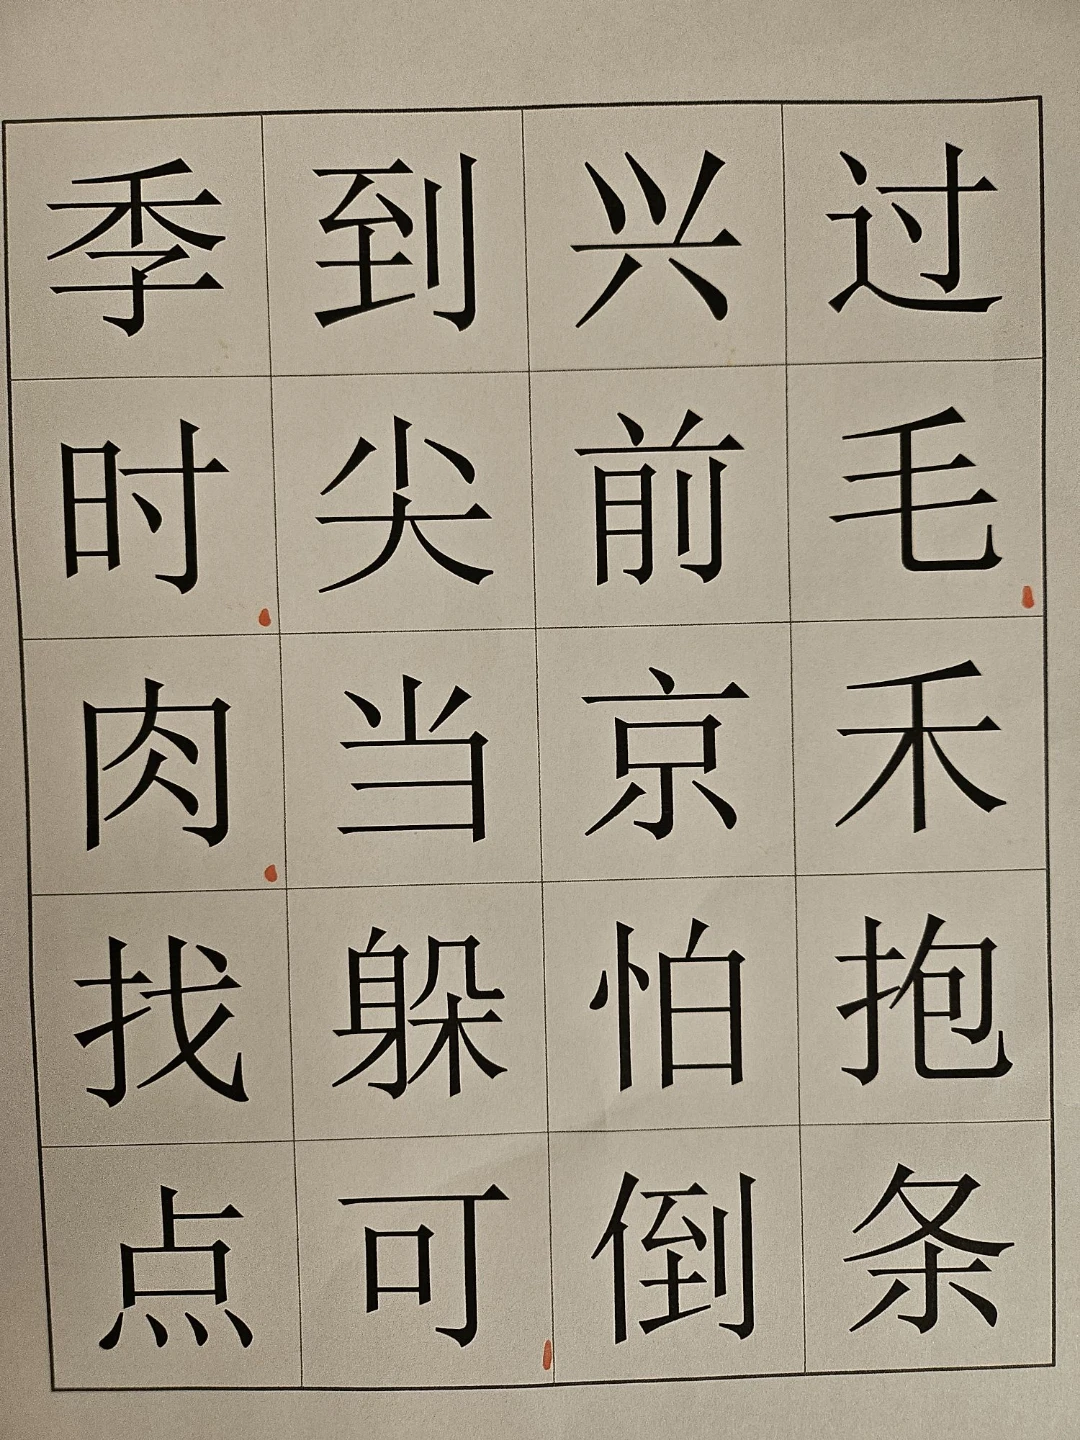 季到兴过
时尖前毛
肉当京禾
找躲怕抱
点可倒条